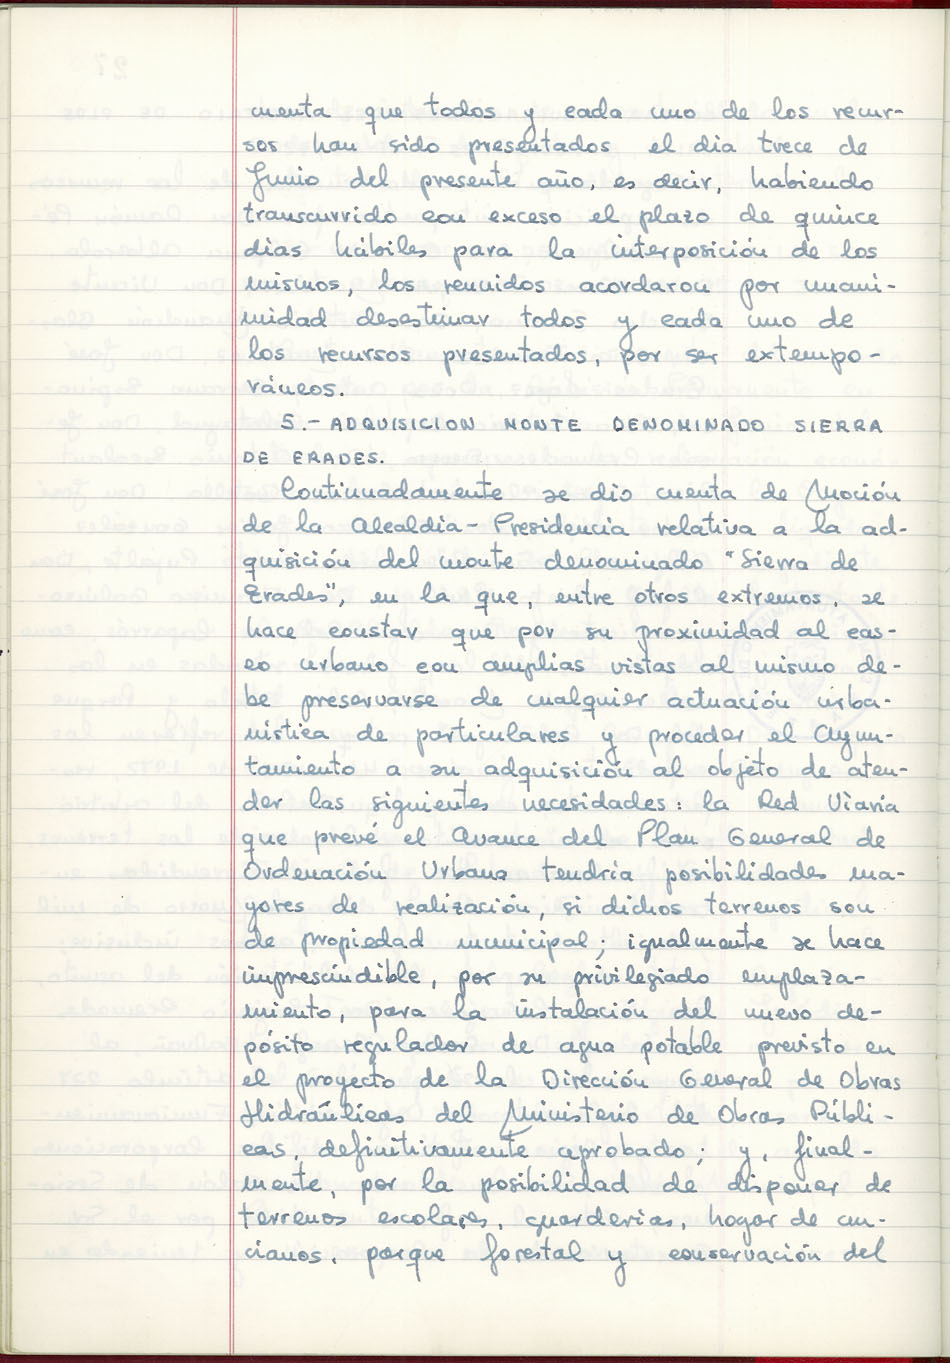 cuenta que todos y cada uno de los recur-
sos han sido presentados el dia trece de
Junio del presente año, es decir, habiendo
transcurrido con exceso el plazo de quince
dias hábiles para la interposición de los
mismos, los reunidos acordaron por unani-
midad desestimar todos y cada uno de
los recursos presentados, por ser extempo-
ráneos.
5.- ADQUISICION MONTE DENOMINADO SIERRA
DE ERADES.
Continuadamente se dio cuenta de Moción
de la Alcaldia-Presidencia relativa a la ad-
quisición del monte denominado "Sierra de
Erades", en la que, entre otros extremos, se
hace constar que por su proximidad al cas-
co urbano con amplias vistas al mismo de-
be preservarse de cualquier actuación urba-
nística de particulares y proceder el Ayun-
tamiento a su adquisición al objeto de aten-
der las siguientes necesidades: la Red Viaria
que prevé el Avance del Plan General de
Ordenación Urbana tendría posibilidades ma-
yores de realización, si dichos terrenos son
de propiedad municipal; igualmente se hace
imprescindible, por su privilegiado emplaza-
miento, para la instalación del nuevo de-
pósito regulador de agua potable previsto en
el proyecto de la Dirección General de Obras
Hidraúlicas del Ministerio de Obras Públi-
cas, definitivamente aprobado; y, final-
mente, por la posibilidad de disponer de
terrenos escolares, guarderias, hogar de an-
cianos, parque forestal y conservación del